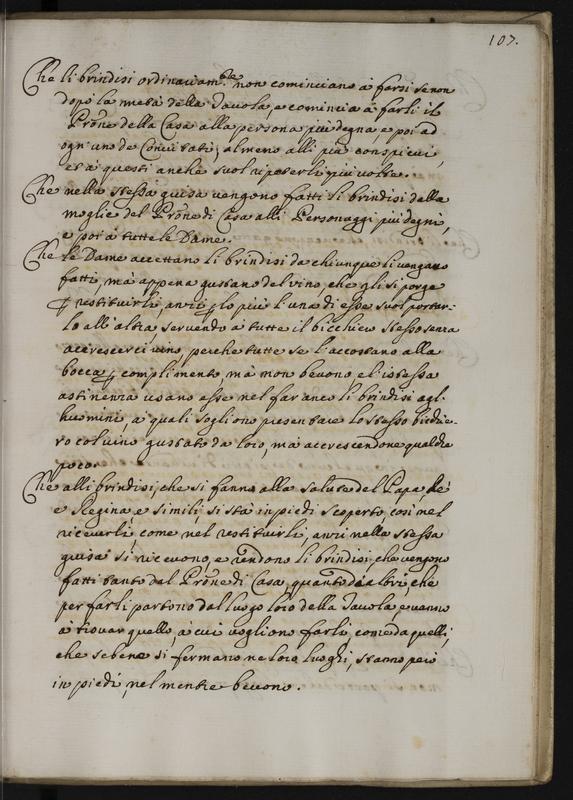 107.
Che li brindisi ordinariam.te non cominciano à farsi se non
dopò la metà della Tauola, e comincia à farli il
Prōne della Casa alla persona più degna e poi ad
ogn'uno de Conuitati, almeno alli più conspicui,
et à questi anche suol ripeterli più uolte.
Che nella stessa guisa uengono fatti li brindisi dalla
moglie del Prōne di Casa alli Personaggi più degni,
e poi à tutte le Dame.
Che le Dame accettano li brindisi da chiunque li uengano
fatti, mà appena gustano del uino, che gli si porge
ꝑ restituirli, anzi ꝑ lo più l'una di esse suol portar-
lo all'altra seruendo à tutte il bicchiero stesso senza
accrescerci uino, perche tutte se l'accostano alla
bocca ꝑ complimento, mà non beuono e l'istessa
astinenza usano esse nel far anco li brindisi agl'
huomini, à quali sogliono presentare lo stesso bicchie-
ro col uino gustato da loro, mà accrescendone qualche
poco.
Che alli brindisi, che si fanno alla salute del Papa Rè
e Regina, e simili, si stà in piedi scoperto, così nel
riceuerli, come nel restituirli, anzi nella stessa
guisa si riceuono, e rendono li brindisi, che uengono
fatti tanto dal Prōne di Casa, quanto da altri, che
per farli partono dal luogo loro della Tauola, e uanno
à trouar quello, à cui uogliono farli, come da quelli,
che sebene si fermano ne loro luoghi, stanno però
in piedi, nel mentre beuono.